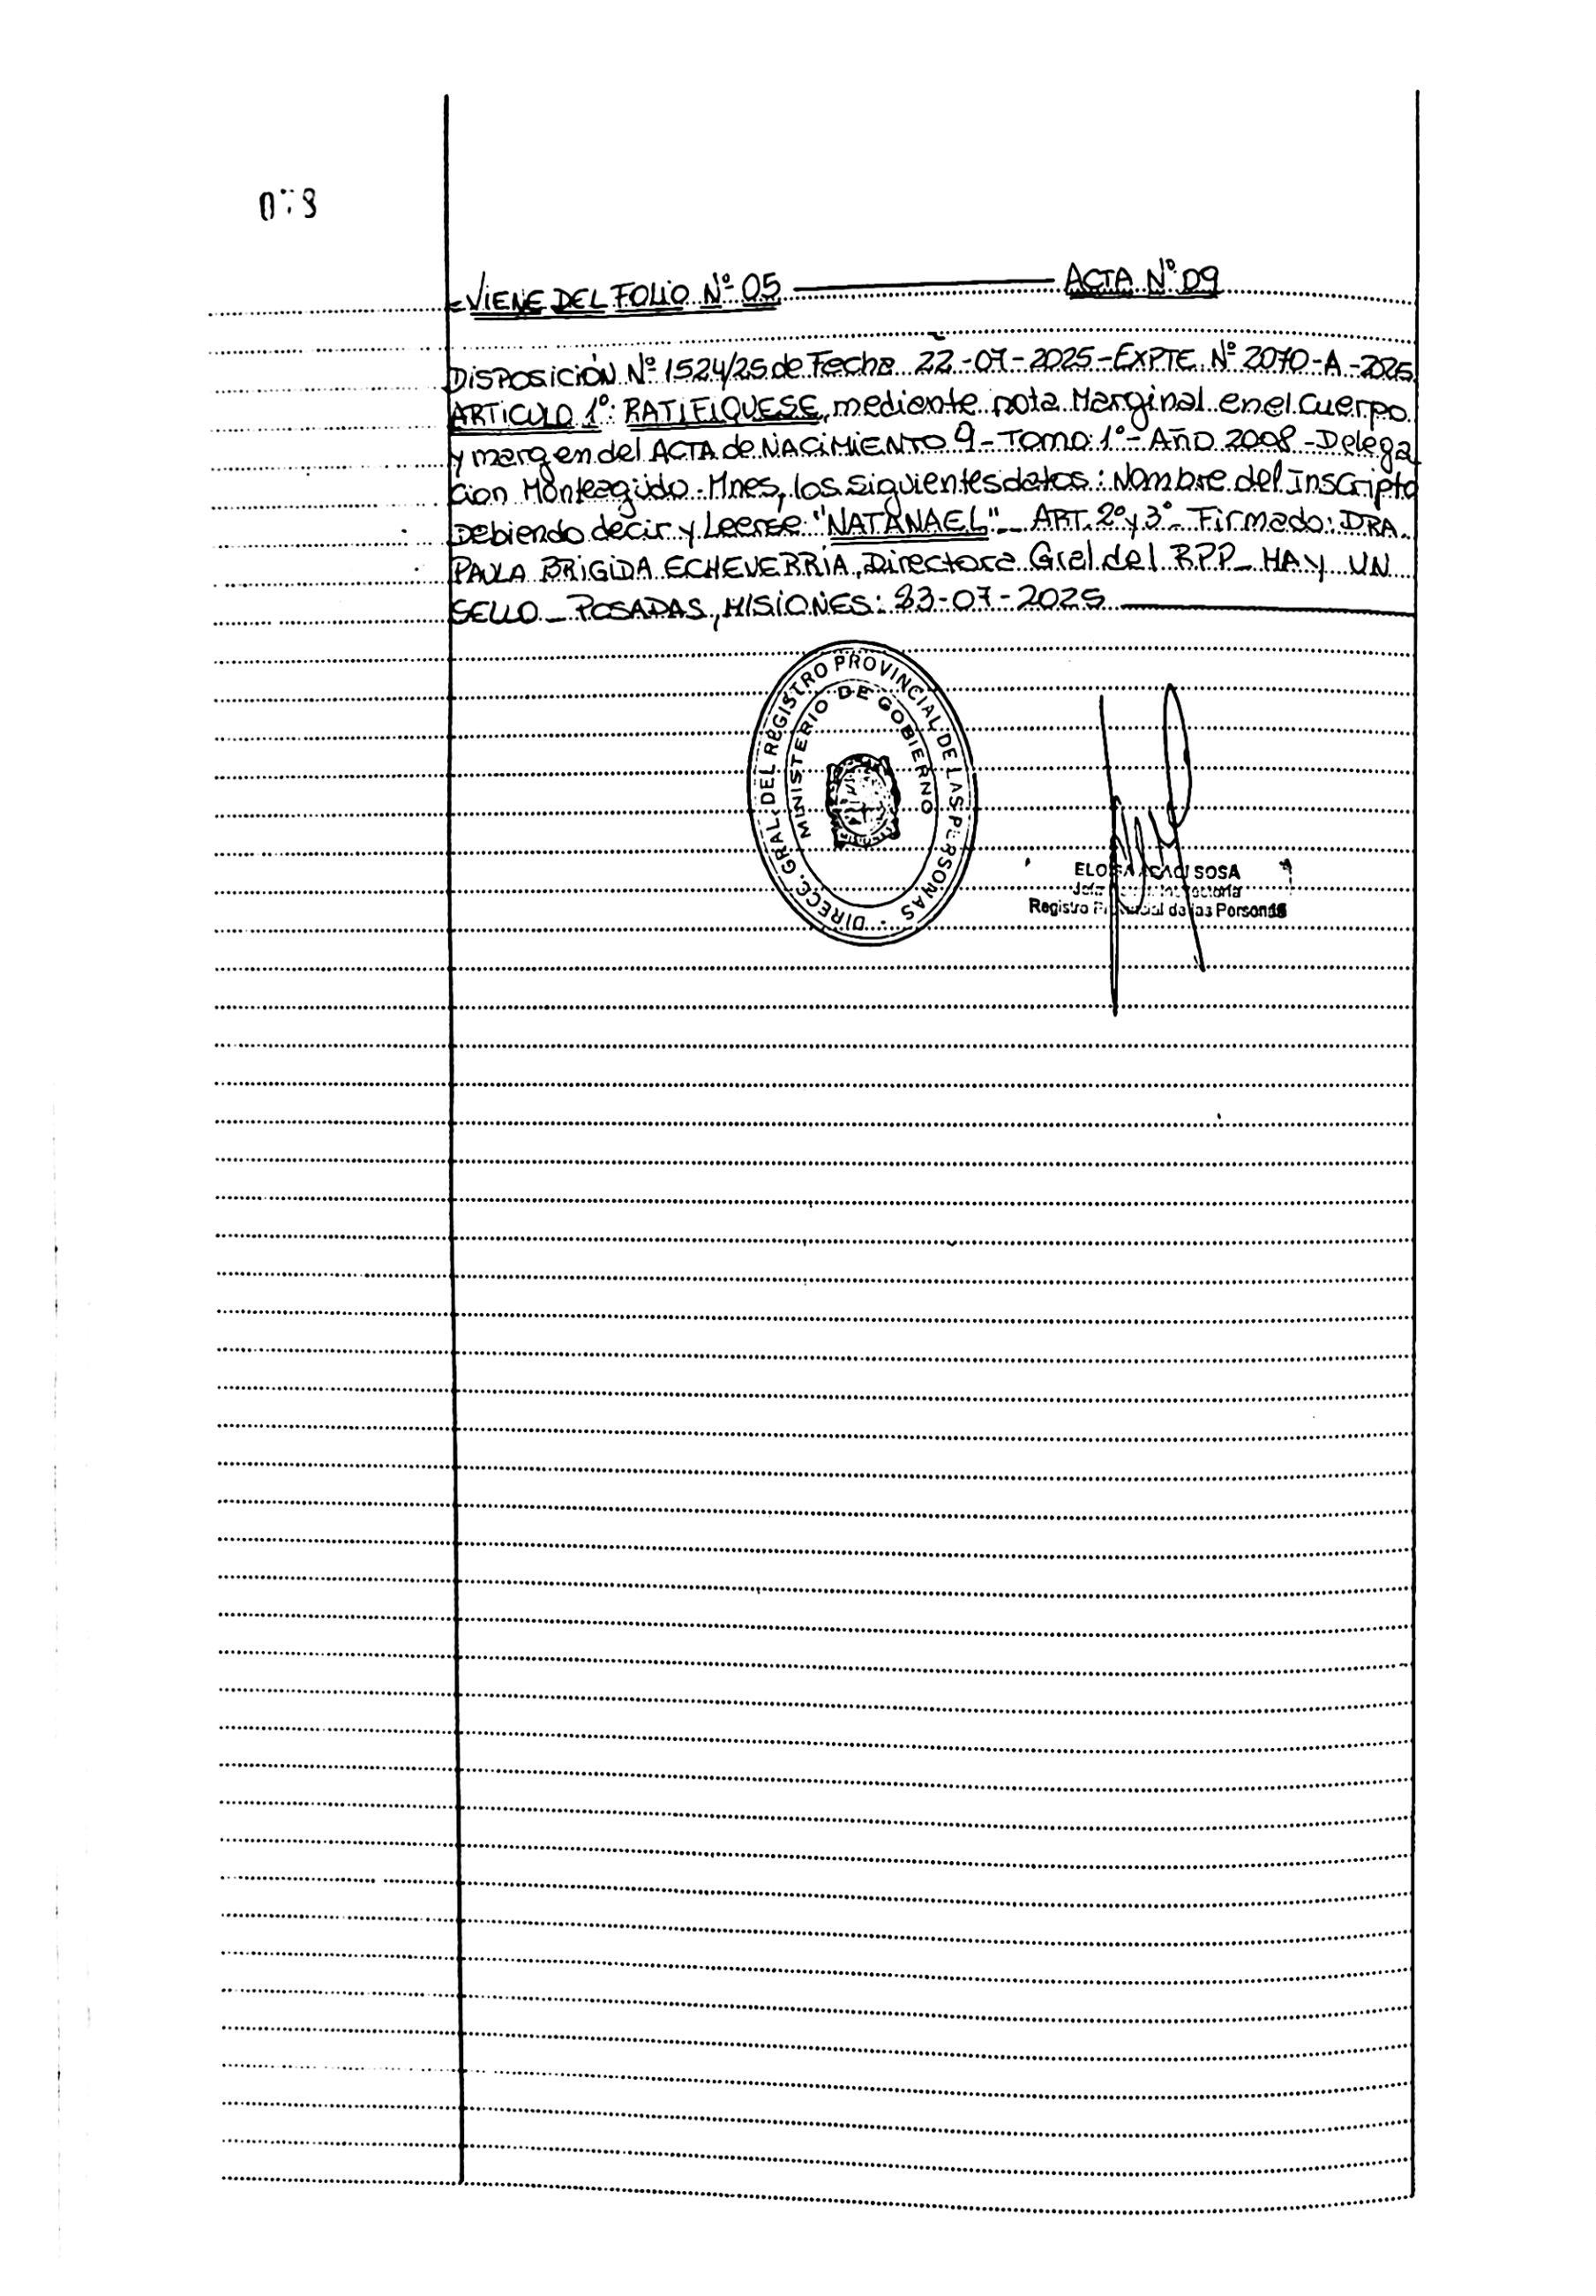 VIENE DEL FOLIO Nº 05 ACTA Nº 09
DISPOSICIÓN Nº 1524/25 de Fecha 22-07-2025-EXPTE. Nº 2070-A-2025
ARTICULO 1º: RATIFIQUESE, mediente nota Marginal en el Cuerpo
y margen del ACTA de NACIMIENTO 9-TOMO:1º-AÑO 2008-Delega
cion Monteagudo-Mnes, los siguientes datos: Nombre del Inscripto
Debiendo decir y Leerse "NATANAEL"_ ART. 2º y 3º_ Firmado: DRA.
PAULA BRIGIDA ECHEVERRIA, Directora Gral del RPP_ HAY UN
SELLO_ POSADAS, MISIONES: 23-07-2025
DIRECC. GRAL. DEL REGISTRO PROVINCIAL DE LAS PERSONAS
MINISTERIO DE GOBIERNO
SOSA
Registro de las Personas